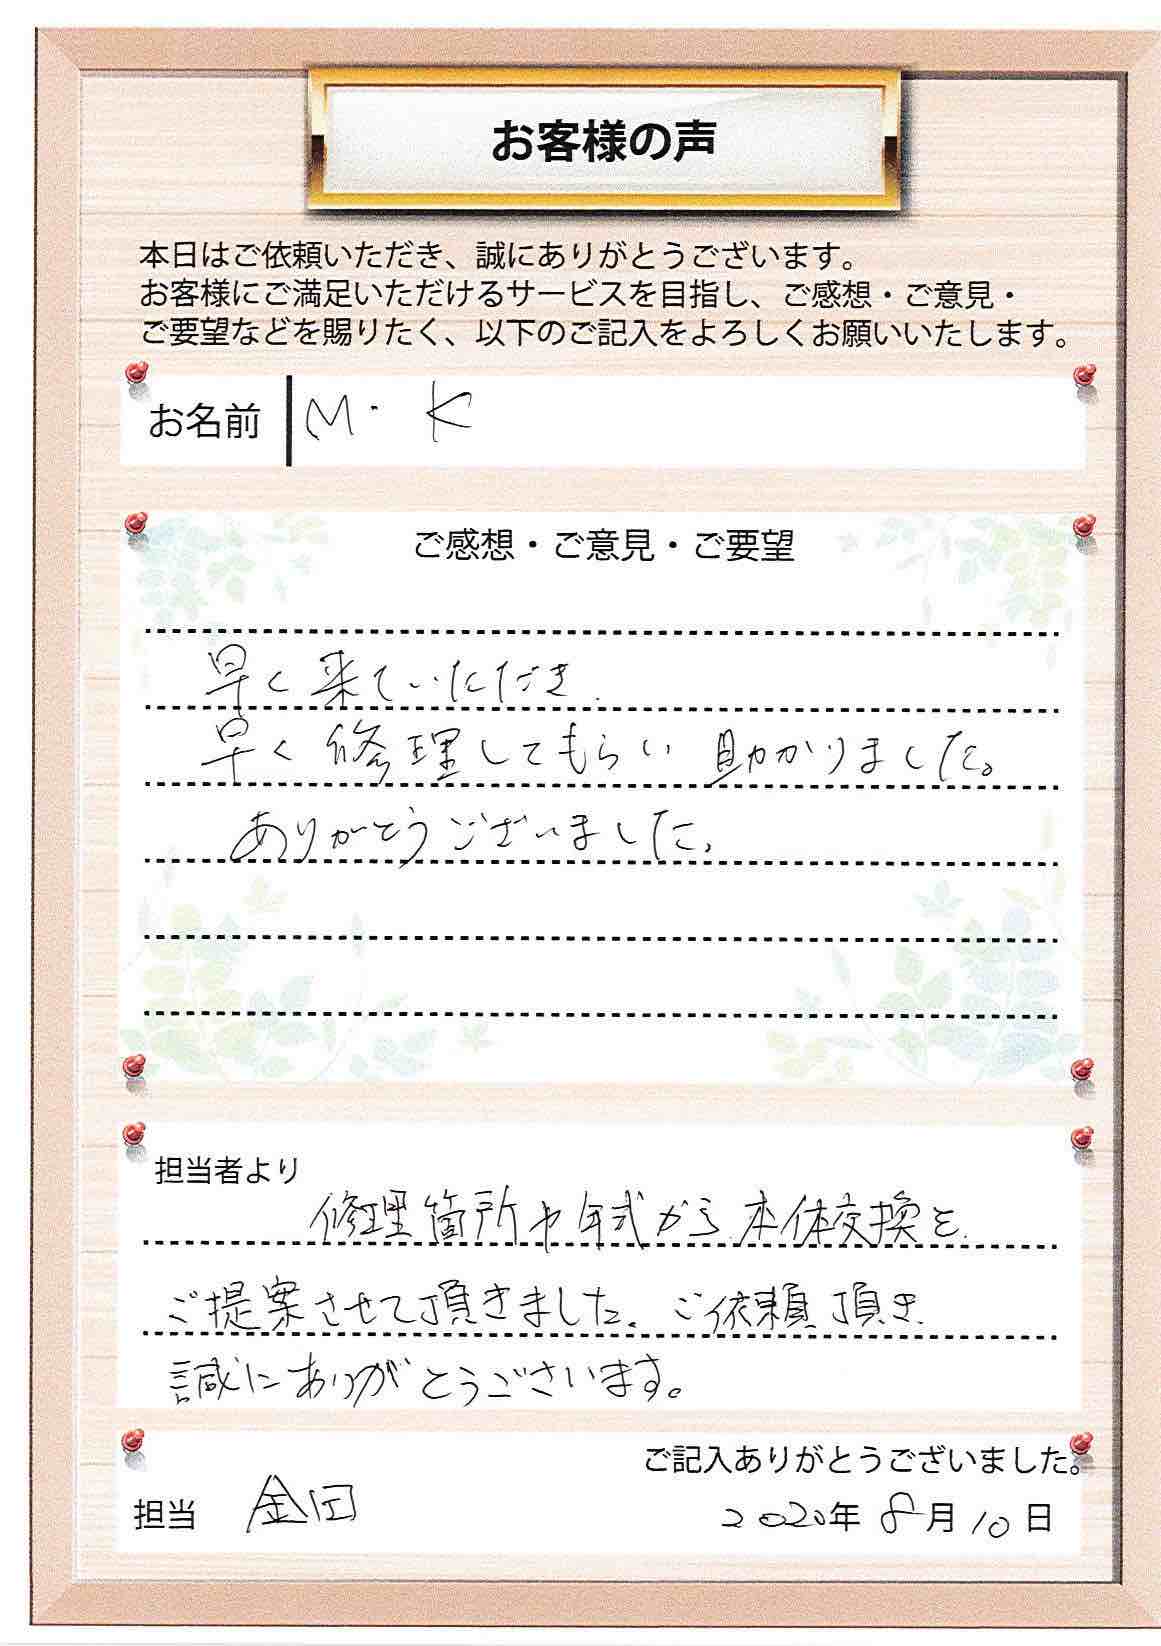 お客様の声
本日はご依頼いただき、誠にありがとうございます。
お客様にご満足いただけるサービスを目指し、ご感想・ご意見・
ご要望などを賜りたく、以下のご記入をよろしくお願いいたします。
お名前 M・K
ご感想・ご意見・ご要望
早く来ていただき、
早く修理してもらい助かりました。
ありがとうございました。
担当者より
修理箇所や年式から、本体交換を
ご提案させて頂きました。ご依頼頂き、
誠にありがとうございます。
ご記入ありがとうございました。
担当 金田 2020年 8月10日